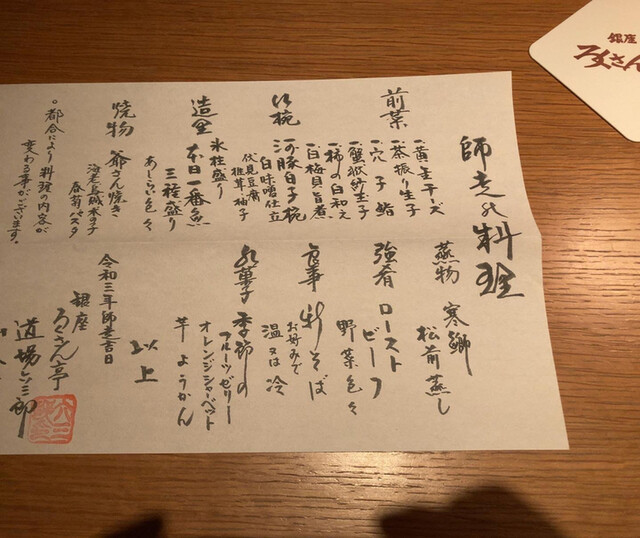 師走の料理
前菜
一、黄身チーズ
一、茶振り生子
一、穴子鮨
一、蟹砧卵黄子
一、柿の白和え
一、白梅貝旨煮
吸椀
河豚白子椀
白味噌仕立
伏見豆腐
椎茸、柚子
造里
本日一番魚
氷柱盛り
三種盛り
あしらい色々
焼物
爺さん焼き
海老長城木の子
春菊パスタ
○都合により料理の内容が
変わる事がございます。
蒸物
寒鰤
松前蒸し
強肴
ロースト
ビーフ
野菜色々
食事
新そば
お好みで
温又は冷
水菓子
季節の
フルーツゼリー
オレンジシャーベット
芋ようかん
以上
令和三年師走吉日
銀座
ろくさん亭
道場六三郎
銀座
ろくさん